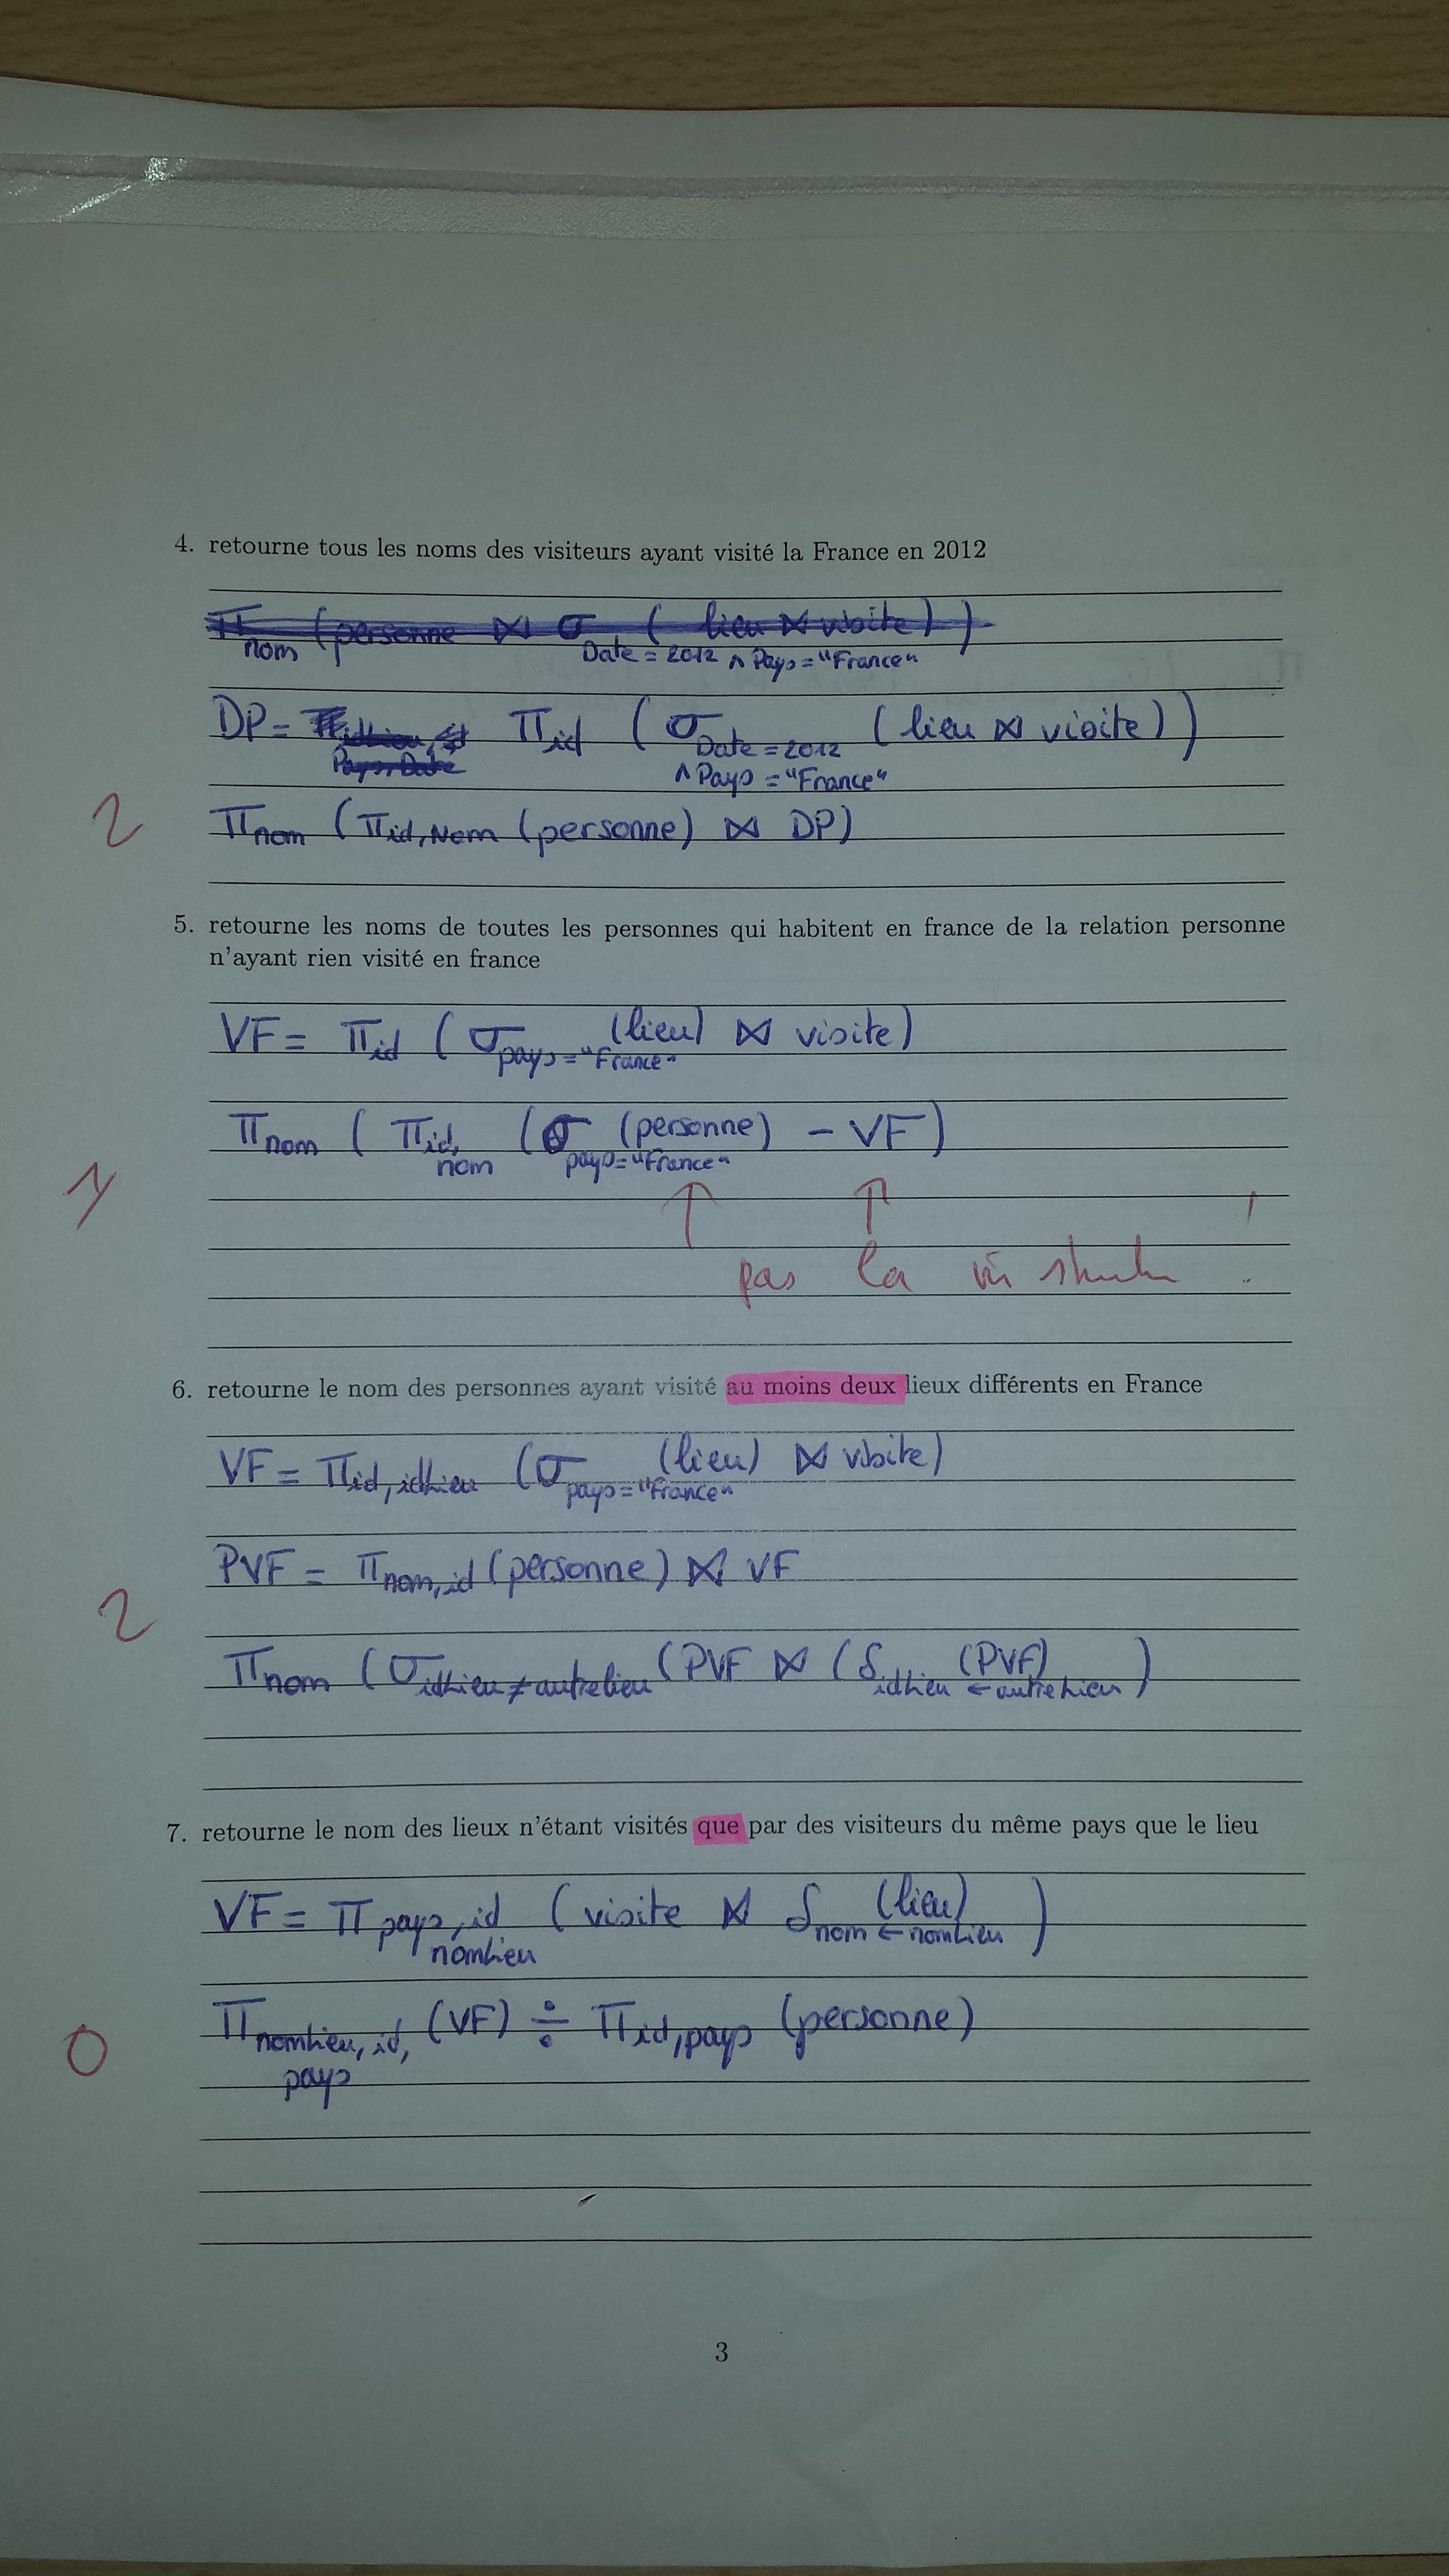 4. retourne tous les noms des visiteurs ayant visité la France en 2012
π nom (personne ⋈ σ Date = 2012 ∧ Pays = "France" (lieu ⋈ visite))
DP = π id (σ Date = 2012 ∧ Pays = "France" (lieu ⋈ visite))
2 π nom (π id, Nom (personne) ⋈ DP)
5. retourne les noms de toutes les personnes qui habitent en france de la relation personne
n'ayant rien visité en france
VF = π id (σ pays = "France" (lieu) ⋈ visite)
π nom (π id, nom (σ pays = "France" (personne) - VF)
1
pas la
6. retourne le nom des personnes ayant visité au moins deux lieux différents en France
VF = π id, idLieu (σ pays = "France" (lieu) ⋈ visite)
PVF = π nom, id (personne) ⋈ VF
2
π nom (σ idLieu ≠ autreLieu (PVF ⋈ (δ idLieu ← autreLieu (PVF) )
7. retourne le nom des lieux n'étant visités que par des visiteurs du même pays que le lieu
VF = π pays, id nomLieu (visite ⋈ δ nom ← nomLieu (lieu) )
0 π nomLieu, id, pays (VF) ÷ π id, pays (personne)
3